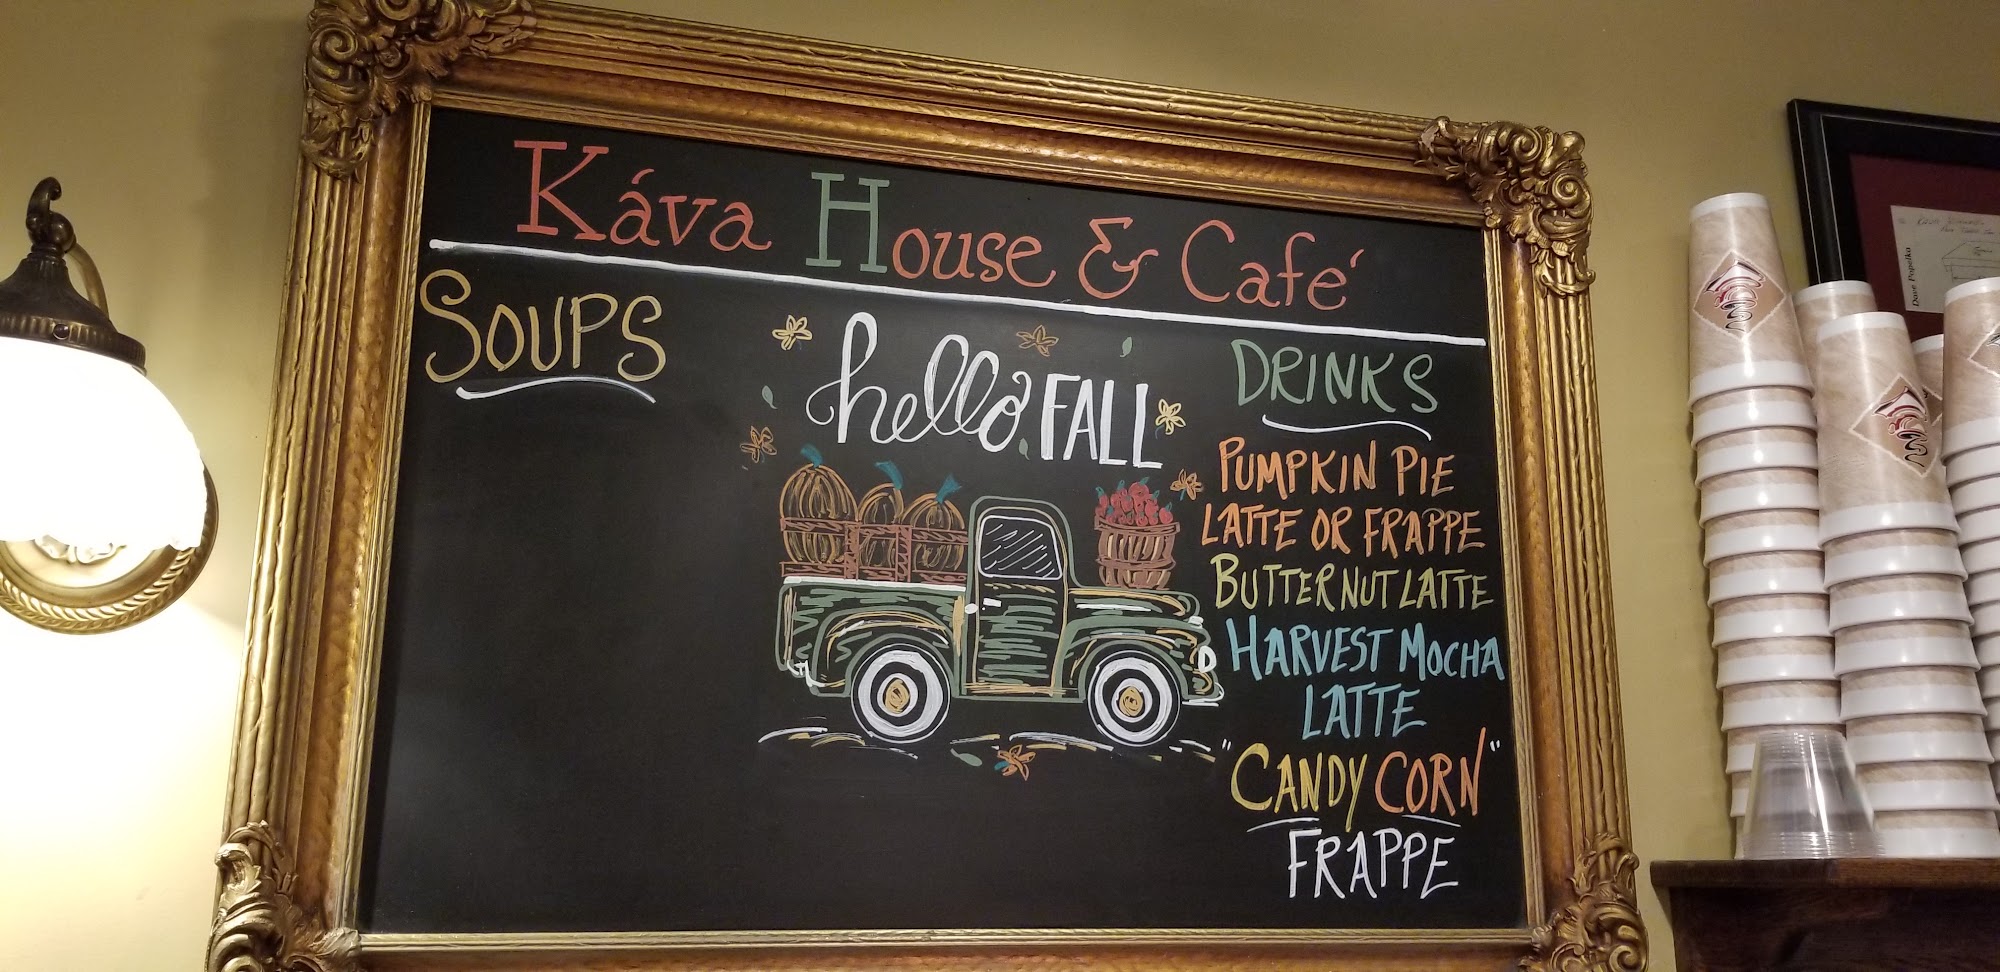 Káva House & Café
SOUPS
hello FALL
DRINKS
PUMPKIN PIE
LATTE OR FRAPPE
BUTTERNUT LATTE
HARVEST MOCHA
LATTE
"CANDY CORN"
FRAPPE
Dave Popelka